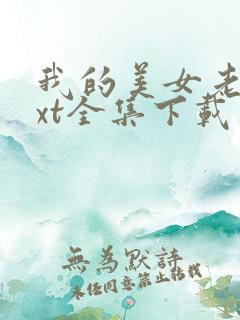 我的美女老
xt全集下载
無為默詩
未经同意禁止转载